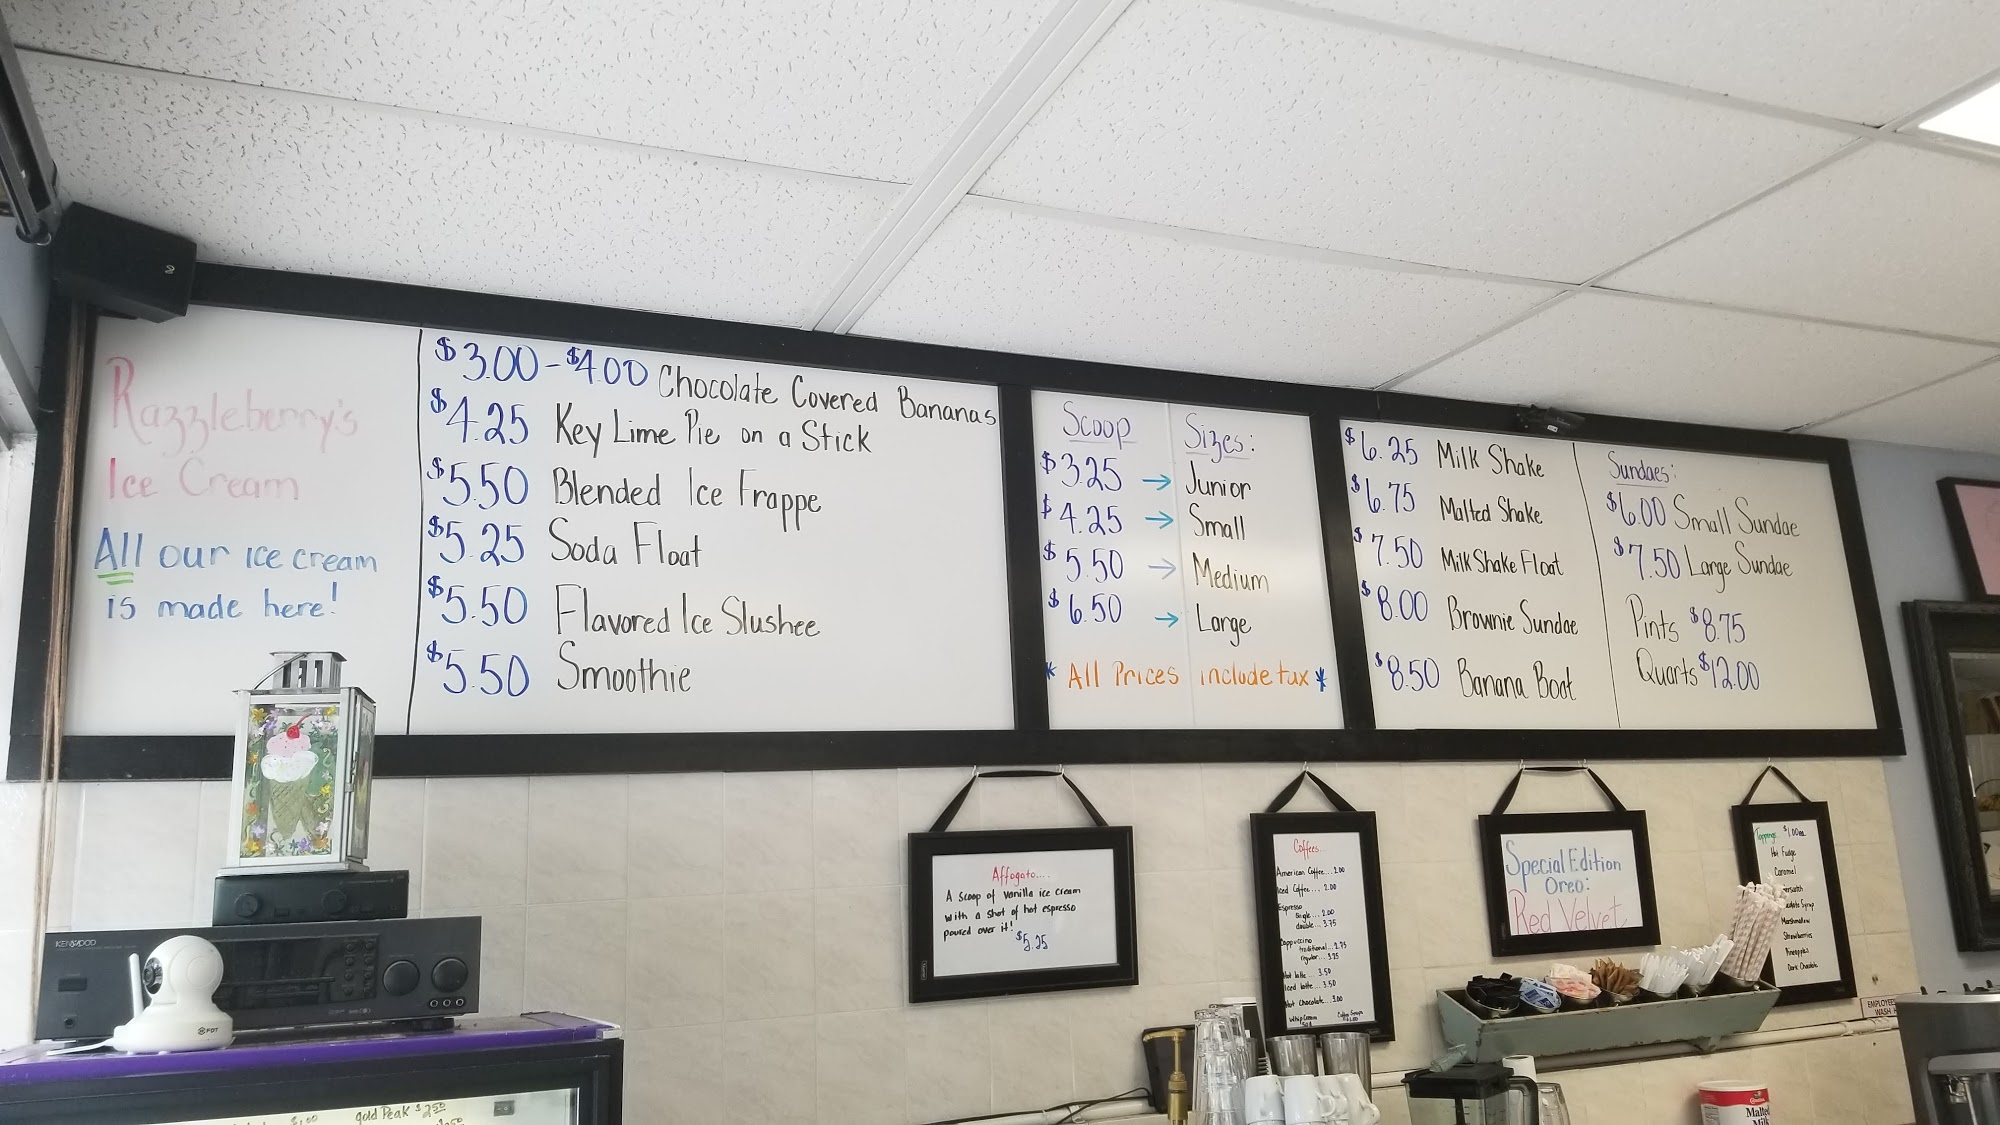 Razzleberry's
Ice Cream
All our ice cream
is made here!
$3.00-$4.00 Chocolate Covered Bananas
$4.25 Key Lime Pie on a Stick
$5.50 Blended Ice Frappe
$5.25 Soda Float
$5.50 Flavored Ice Slushee
$5.50 Smoothie
Scoop Sizes:
$3.25 → Junior
$4.25 → Small
$5.50 → Medium
$6.50 → Large
* All Prices include tax *
$6.25 Milk Shake
$6.75 Malted Shake
$7.50 Milk Shake Float
$8.00 Brownie Sundae
$8.50 Banana Boat
Sundaes:
$6.00 Small Sundae
$7.50 Large Sundae
Pints $8.75
Quarts $12.00
Affogato....
A scoop of vanilla ice cream
with a shot of hot espresso
poured over it!
$5.25
Coffees...
American Coffee... 2.00
Iced Coffee.... 2.00
Espresso
Single... 2.00
double... 3.75
Cappuccino
traditional... 2.75
regular... 3.25
Hot latte... 3.50
Iced latte... 3.50
Hot Chocolate... 3.00
Whip Cream
Special Edition
Oreo:
Red Velvet
Toppings $1.00ea.
Hot Fudge
Caramel
Marshmallow
Strawberries
Pineapple
Dark Chocolate
EMPLOYEES
WASH
KENWOOD
FDT
gold Peak $2.50
$1.00
Malted
Milk